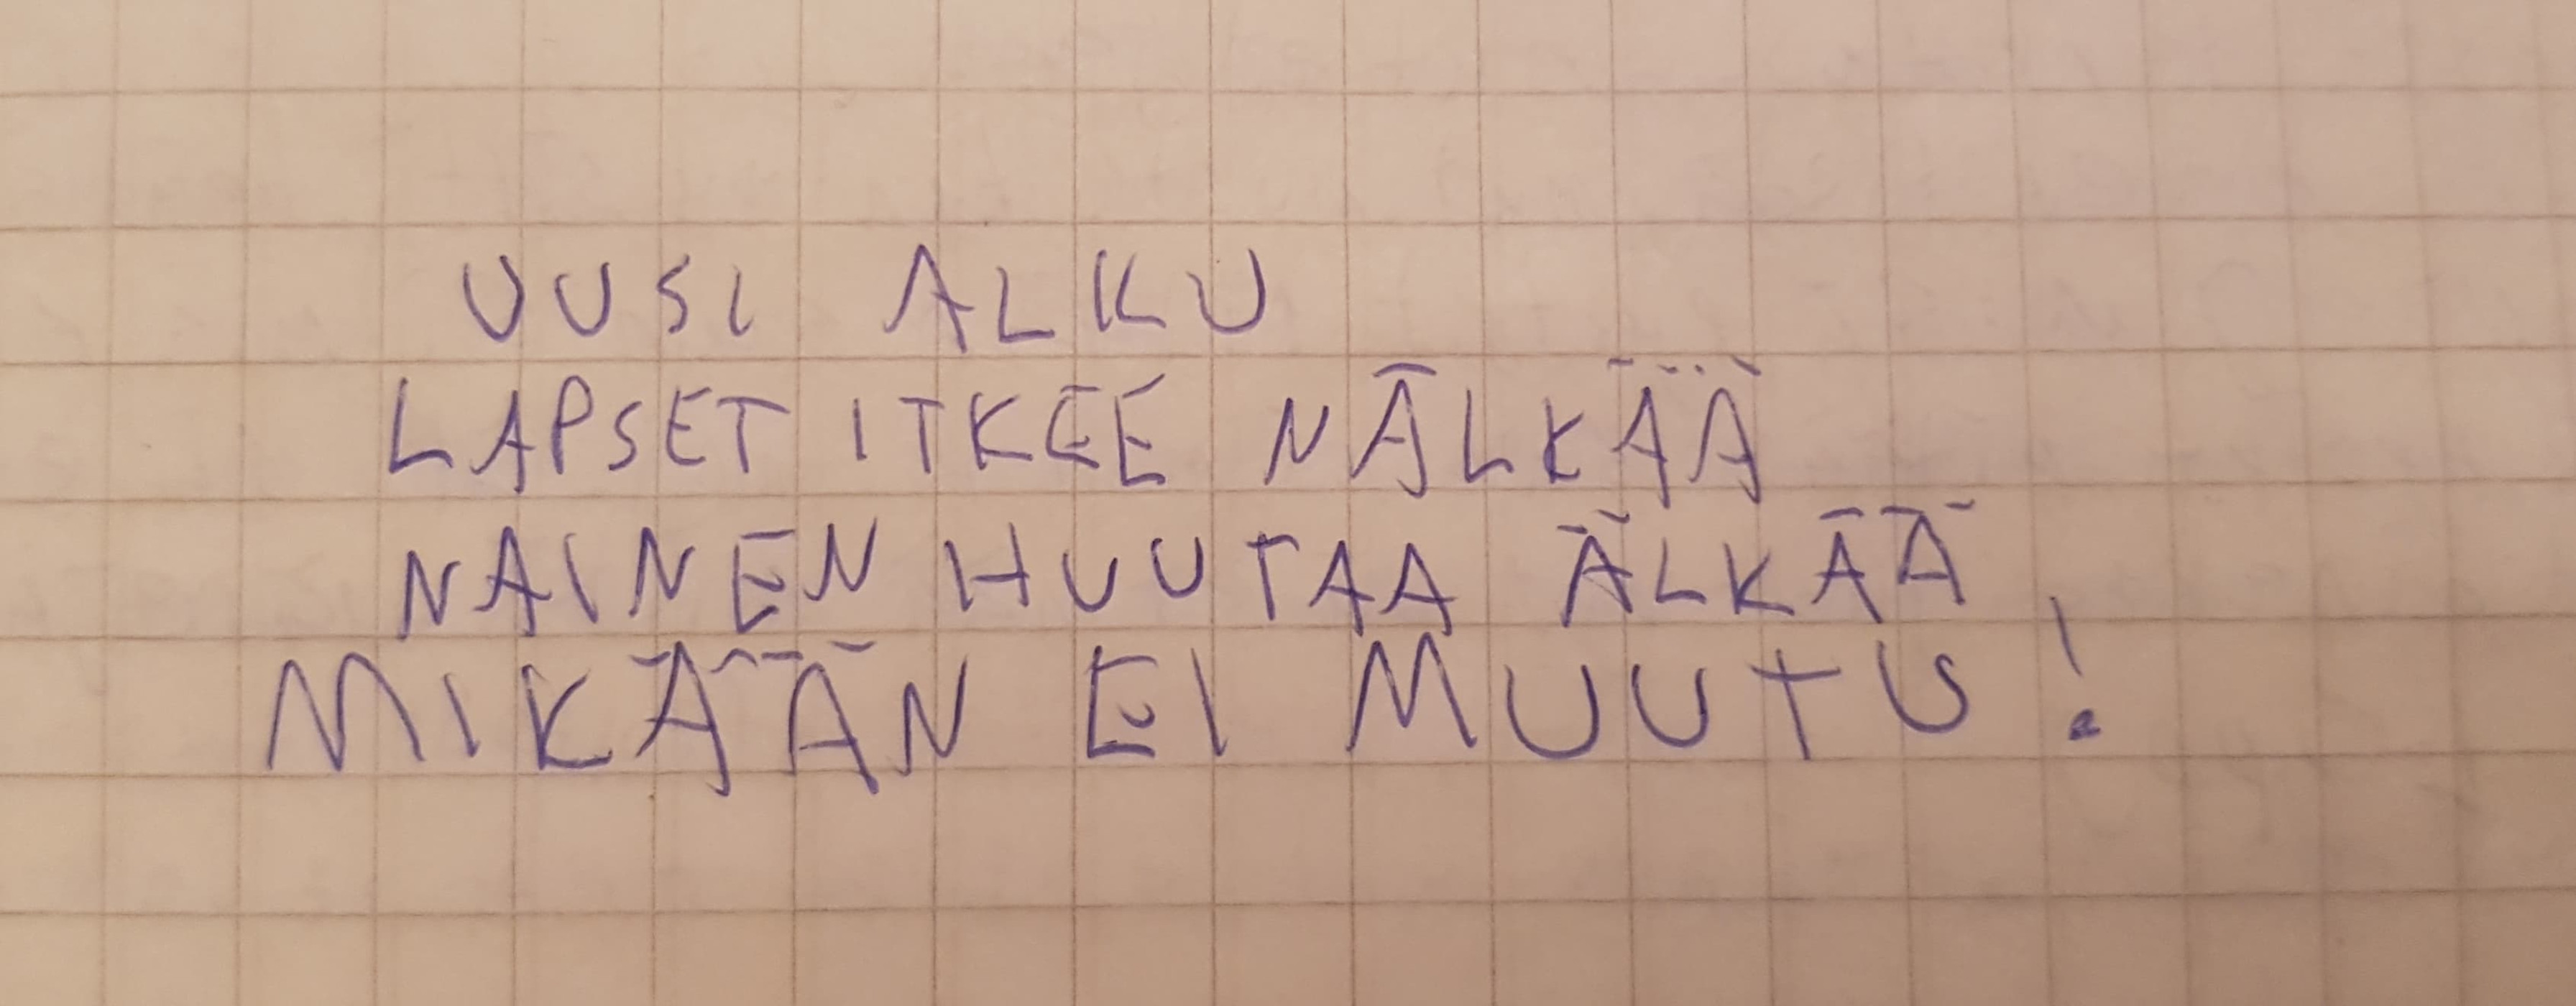 UUSI ALKU
LAPSET ITKEE NÄLKÄÄ
NAINEN HUUTAA ÄLKÄÄ
MIKÄÄN EI MUUTU!